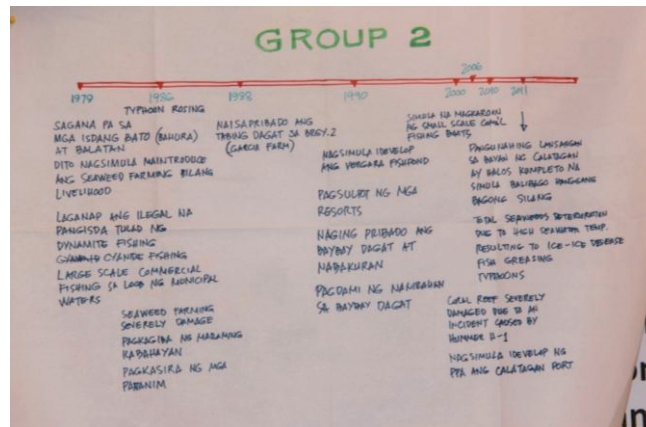 GROUP 2
1979
1986
1988
1990
2000
2006
2010
2011
TYPHOON ROSING
SAGANA PA SA
MGA ISDANG BATO (BAHURA)
AT BALATAN
DITO NAGSIMULA MAINTRODUCE
ANG SEAWEED FARMING BILANG
LIVELIHOOD
LAGANAP ANG ILEGAL NA
PANGISDA TULAD NG
DYNAMITE FISHING
CYANIDE FISHING
LARGE SCALE COMMERCIAL
FISHING SA LOOB NG MUNICIPAL
WATERS
SEAWEED FARMING
SEVERELY DAMAGE
PAGKAGIBA NG MARAMING
KABAHAYAN
PAGKASIRA NG MGA
PANANIM
NAISAPRIBADO ANG
TABING DAGAT SA BRGY. 2
(GARCIA FARM)
NAGSIMULA IDEVELOP
ANG VERGARA FISHPOND
PAGSULPOT NG MGA
RESORTS
NAGING PRIBADO ANG
BAYBAY DAGAT AT
NABAKURAN
PAGDAMI NG NANIRAHAN
SA BAYBAY DAGAT
SIMULA NA MAGKAROON
NG SMALL SCALE COM'L
FISHING BOATS
PANGUNAHING LANSANGAN
SA BAYAN NG CALATAGAN
AY HALOS KUMPLETO NA
SIMULA BALIBAGO HANGGANG
BAGONG SILANG
TOTAL SEAWEEDS DETERIORATION
DUE TO HIGH SEAWATER TEMP.
RESULTING TO ICE-ICE DISEASE
FISH GREASING
TYPHOONS
CORAL REEF SEVERELY
DAMAGED DUE TO AN
INCIDENT CAUSED BY
HUMMER H-1
NAGSIMULA IDEVELOP NG
PPA ANG CALATAGAN PORT